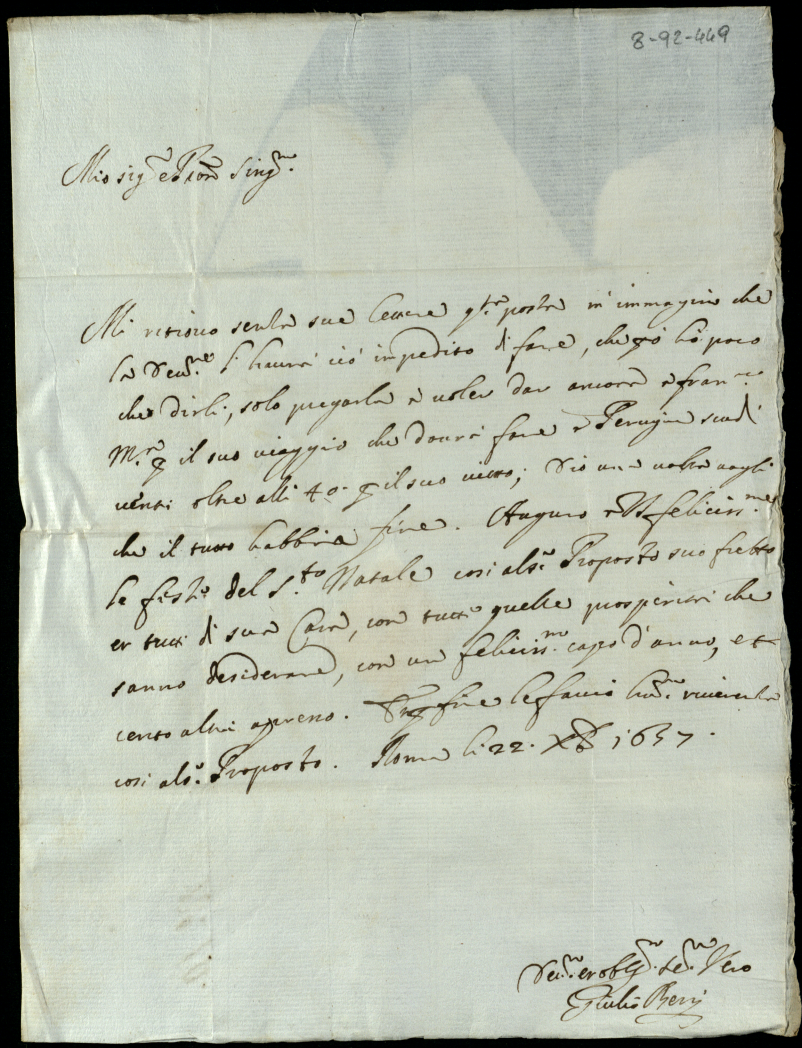 8-92-449
Mio sig.re e Pron Sing.mo
Mi ritrovo senza sue lettere q.ta posta m'immagino che
la l'haurà ciò impedito di fare, che p̱ò hò poco
che dirli, solo pregarla à voler dar ancora à Fran.co
M.ra p̱ il suo viaggio che dourà fare à Perugia scudi
venti oltre alli p̱ il suo vitto; Dio una volta vogli
che il tutto habbia fine. Auguro à VS feliciss.me
le feste del S.to Natale così al s.r Proposto suo frẽllo
et tutti di sua Casa, con tutte quelle prosperità che
sanno desiderare, con un feliciss.mo capo d'anno, et
cento altri apresso. fine le faccio hu.ma riuerenza
così al s.r Proposto. Roma li 22. Xb 1657.
Deu.mo et obl.mo se.re Vero
Giulio